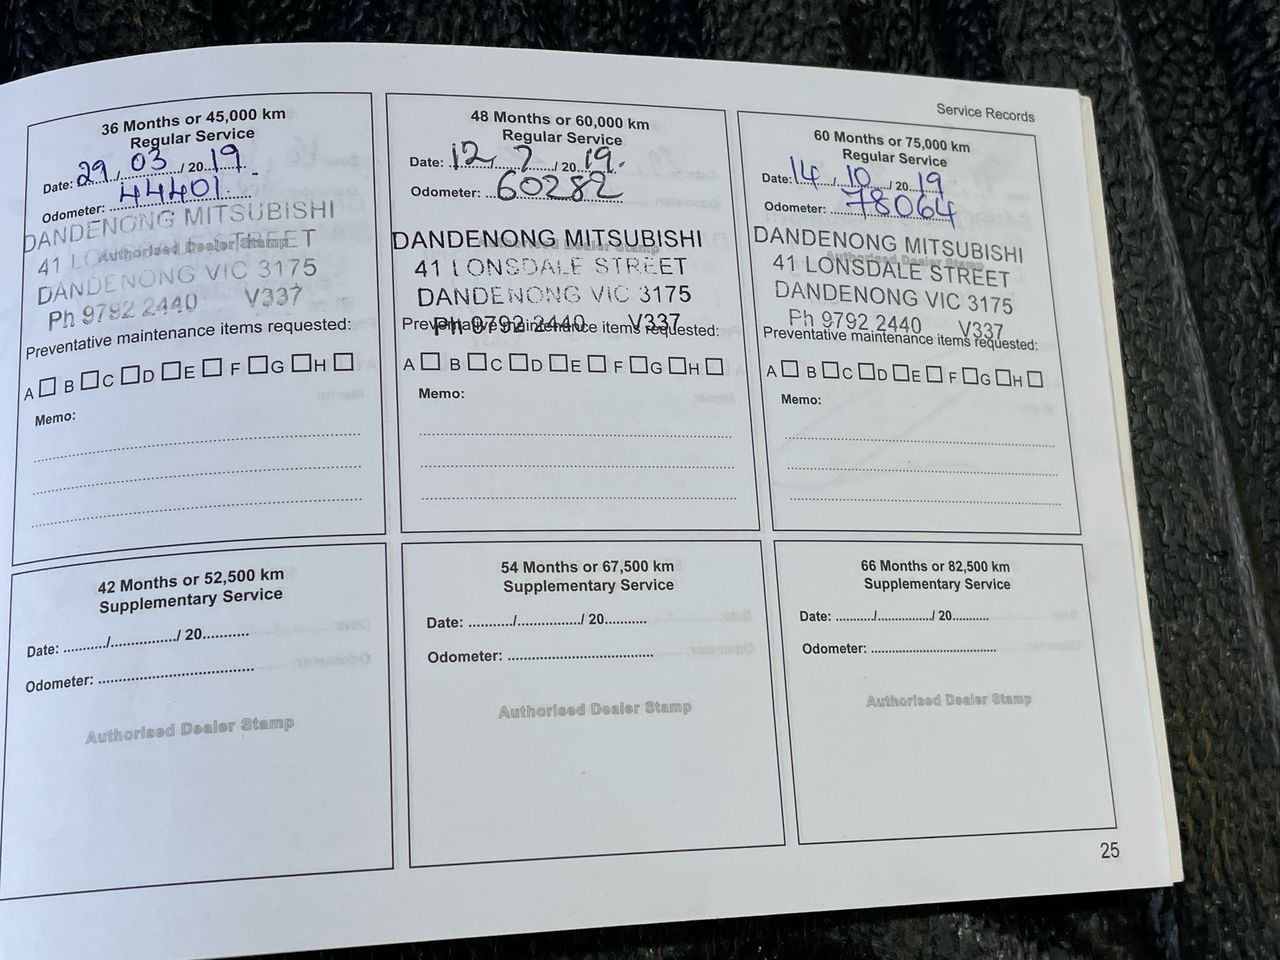 Service Records
36 Months or 45,000 km
Regular Service
Date: 29 / 03 / 20 19
Odometer: 44401
Authorised Dealer Stamp
DANDENONG MITSUBISHI
41 LONSDALE STREET
DANDENONG VIC 3175
Ph 9792 2440 V337
Preventative maintenance items requested:
A B C D E F G H
Memo:
48 Months or 60,000 km
Regular Service
Date: 12 / 7 / 20 19.
Odometer: 60282
Authorised Dealer Stamp
DANDENONG MITSUBISHI
41 LONSDALE STREET
DANDENONG VIC 3175
Ph 9792 2440 V337
Preventative maintenance items requested:
A B C D E F G H
Memo:
60 Months or 75,000 km
Regular Service
Date: 14 / 10 / 20 19
Odometer: 78064
Authorised Dealer Stamp
DANDENONG MITSUBISHI
41 LONSDALE STREET
DANDENONG VIC 3175
Ph 9792 2440 V337
Preventative maintenance items requested:
A B C D E F G H
Memo:
42 Months or 52,500 km
Supplementary Service
Date: ........../................/ 20...........
Odometer: ........................................
Authorised Dealer Stamp
54 Months or 67,500 km
Supplementary Service
Date: ........../................/ 20...........
Odometer: ........................................
Authorised Dealer Stamp
66 Months or 82,500 km
Supplementary Service
Date: ........../................/ 20...........
Odometer: ........................................
Authorised Dealer Stamp
25